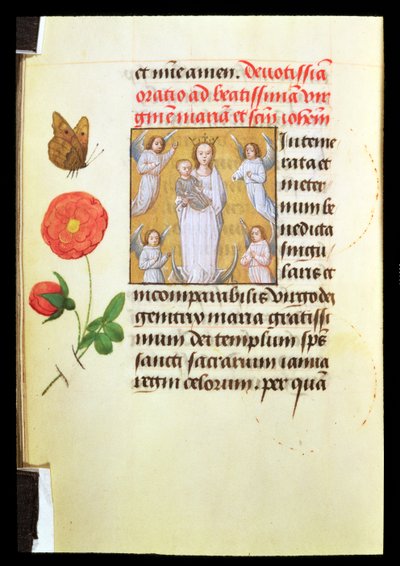 et amen. Devotissiā
oratio ad beatissimā vir
ginē mariā et sctm̄ iohem̄
Inteme
rata et
in eter
num be
nedicta
singu
laris et
incomparabilis virgo dei
genitrix maria gratissi
mum dei templum sps̄
sancti sacrarium ianua
regni celorum. per quā